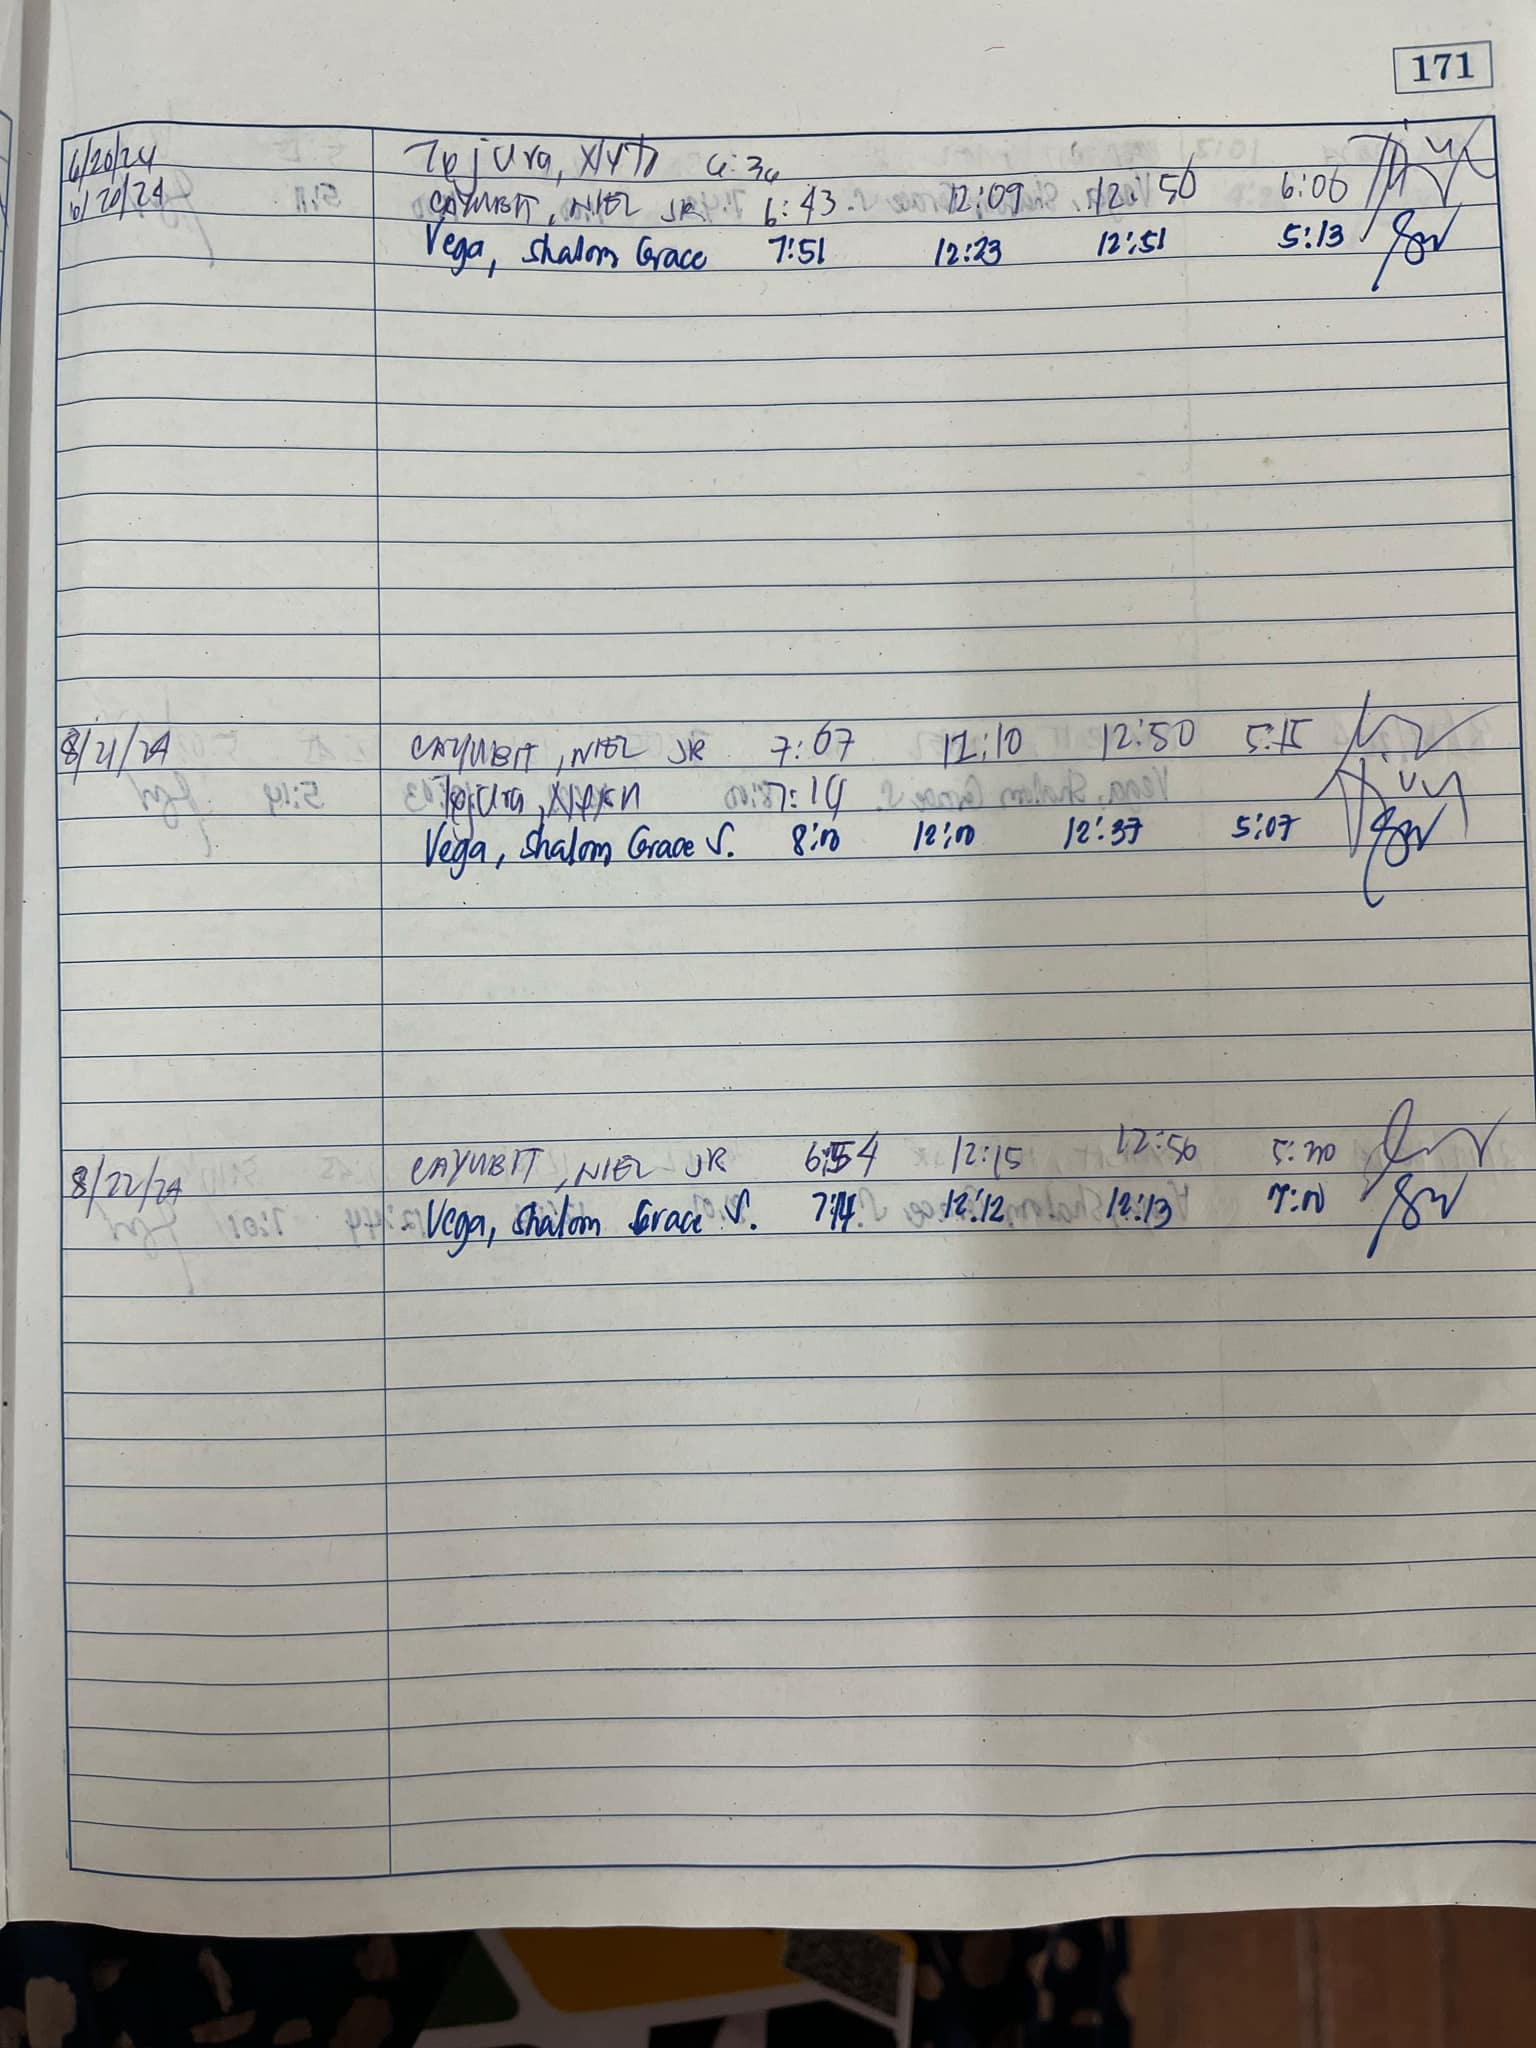 171
6/20/24 Tejura, 6:34
6/20/24 CAYUBIT, NIEL JR 6:43 12:09 12:50 6:06
Vega, Shalom Grace 7:51 12:23 12:51 5:13
8/21/24 CAYUBIT, NIEL JR 7:07 12:10 12:50 5:15
Tejura, 7:14
Vega, Shalom Grace S. 8:00 12:00 12:37 5:07
8/22/24 CAYUBIT, NIEL JR 6:54 12:15 12:56 5:20
Vega, Shalom Grace S. 7:14 12:12 12:13 7:00